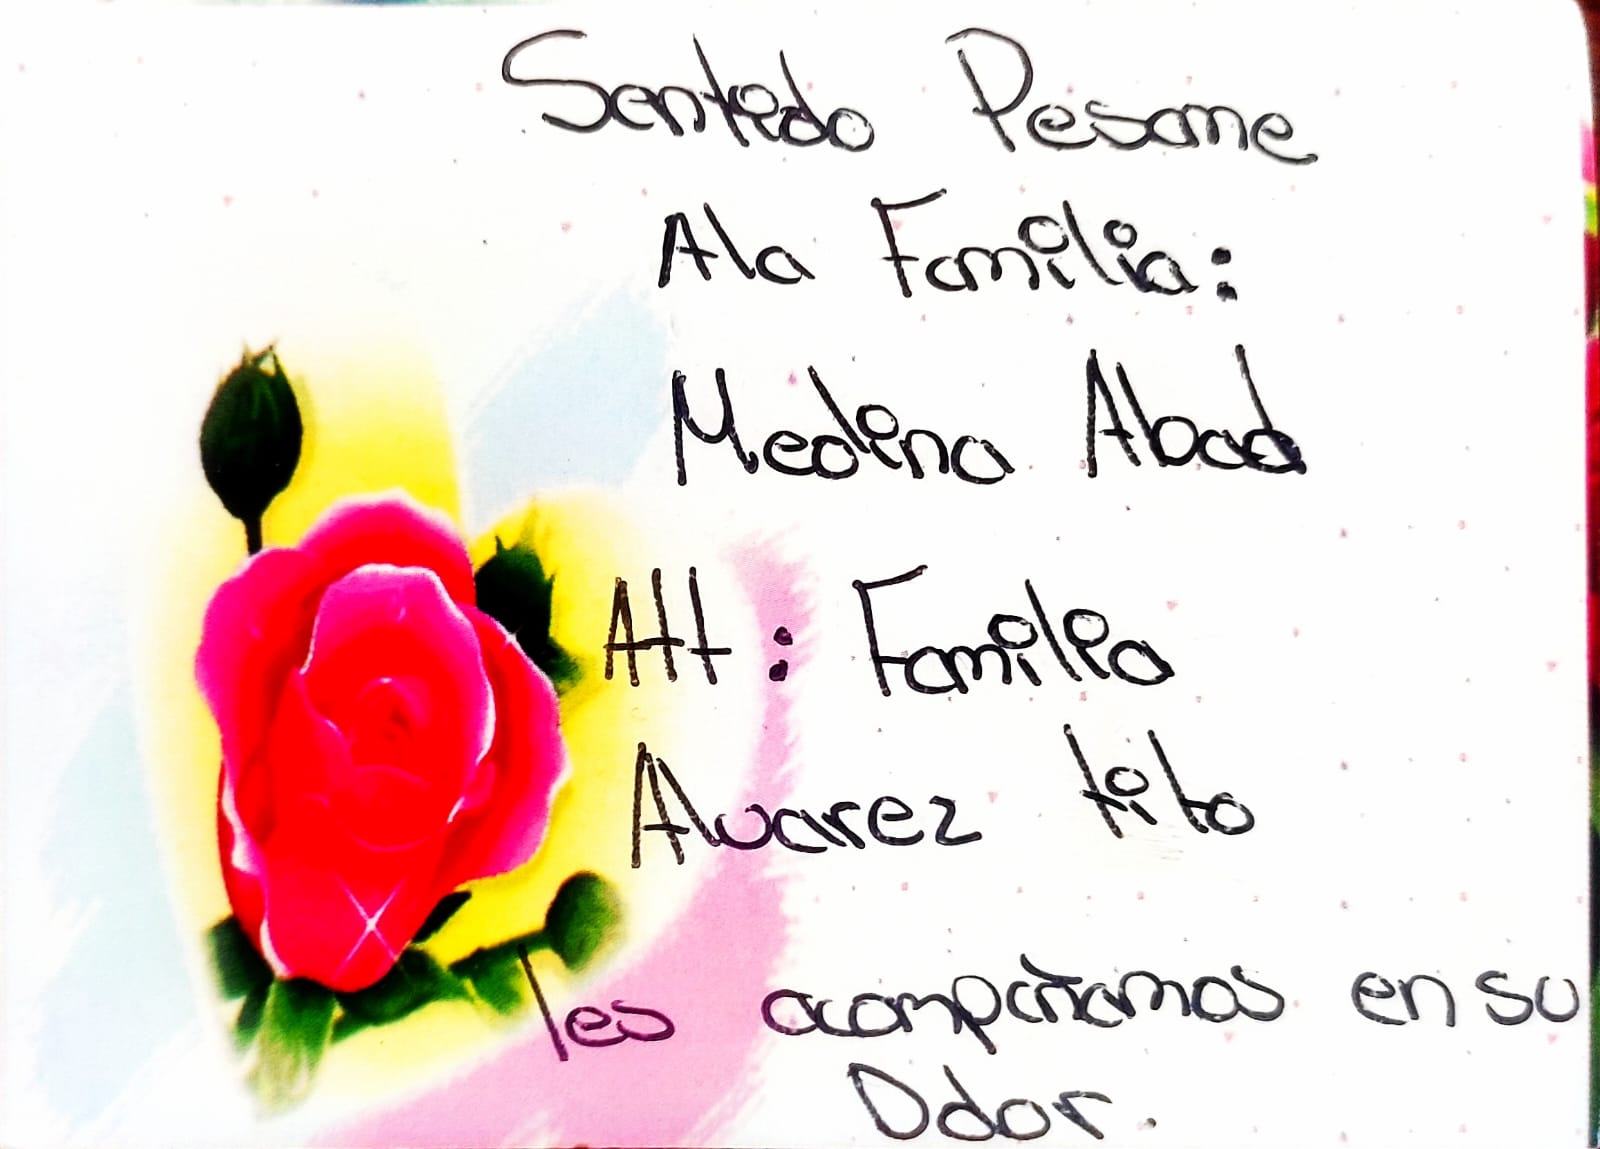 Sentido Pesame
A la Familia:
Medina Abad
Att: Familia
Alvarez tito
les acompañamos en su
Dolor.